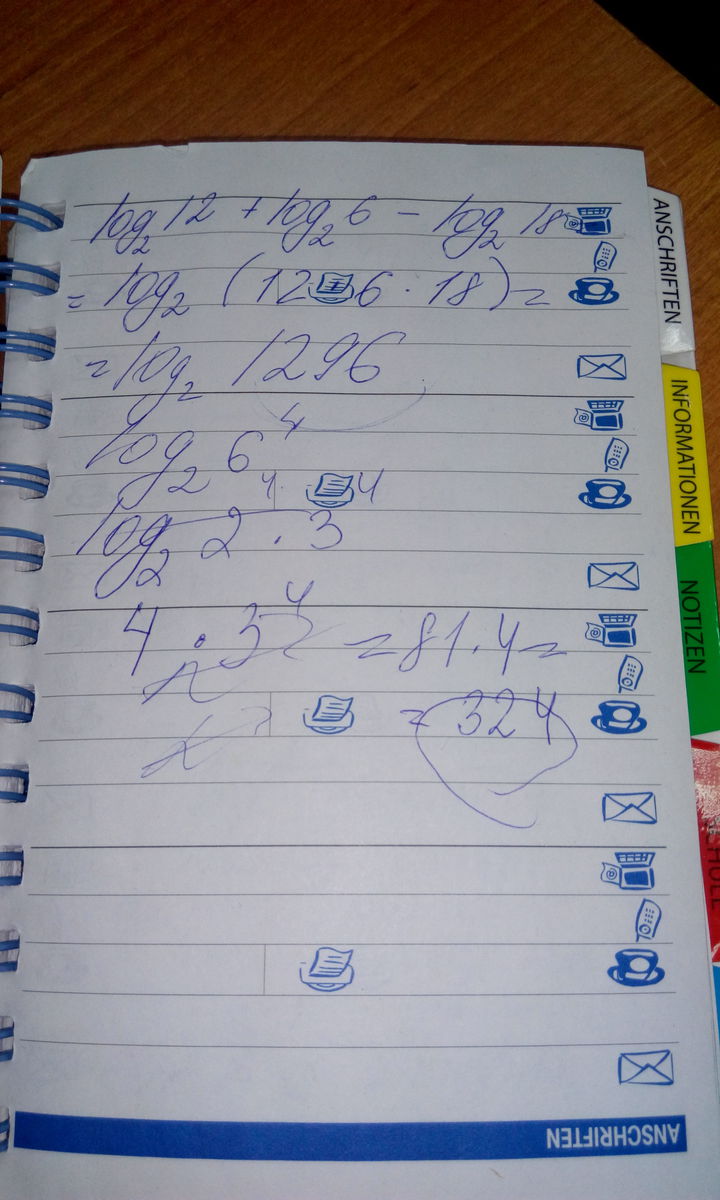 log₂ 12 + log₂ 6 − log₂ 18
= log₂ (12 · 6 · 18) =
= log₂ 1296
log₂ 6⁴
log₂ 2⁴ · 3⁴
4 · 3⁴ = 81 · 4 =
= 324
ANSCHRIFTEN
INFORMATIONEN
NOTIZEN
ANSCHRIFTEN